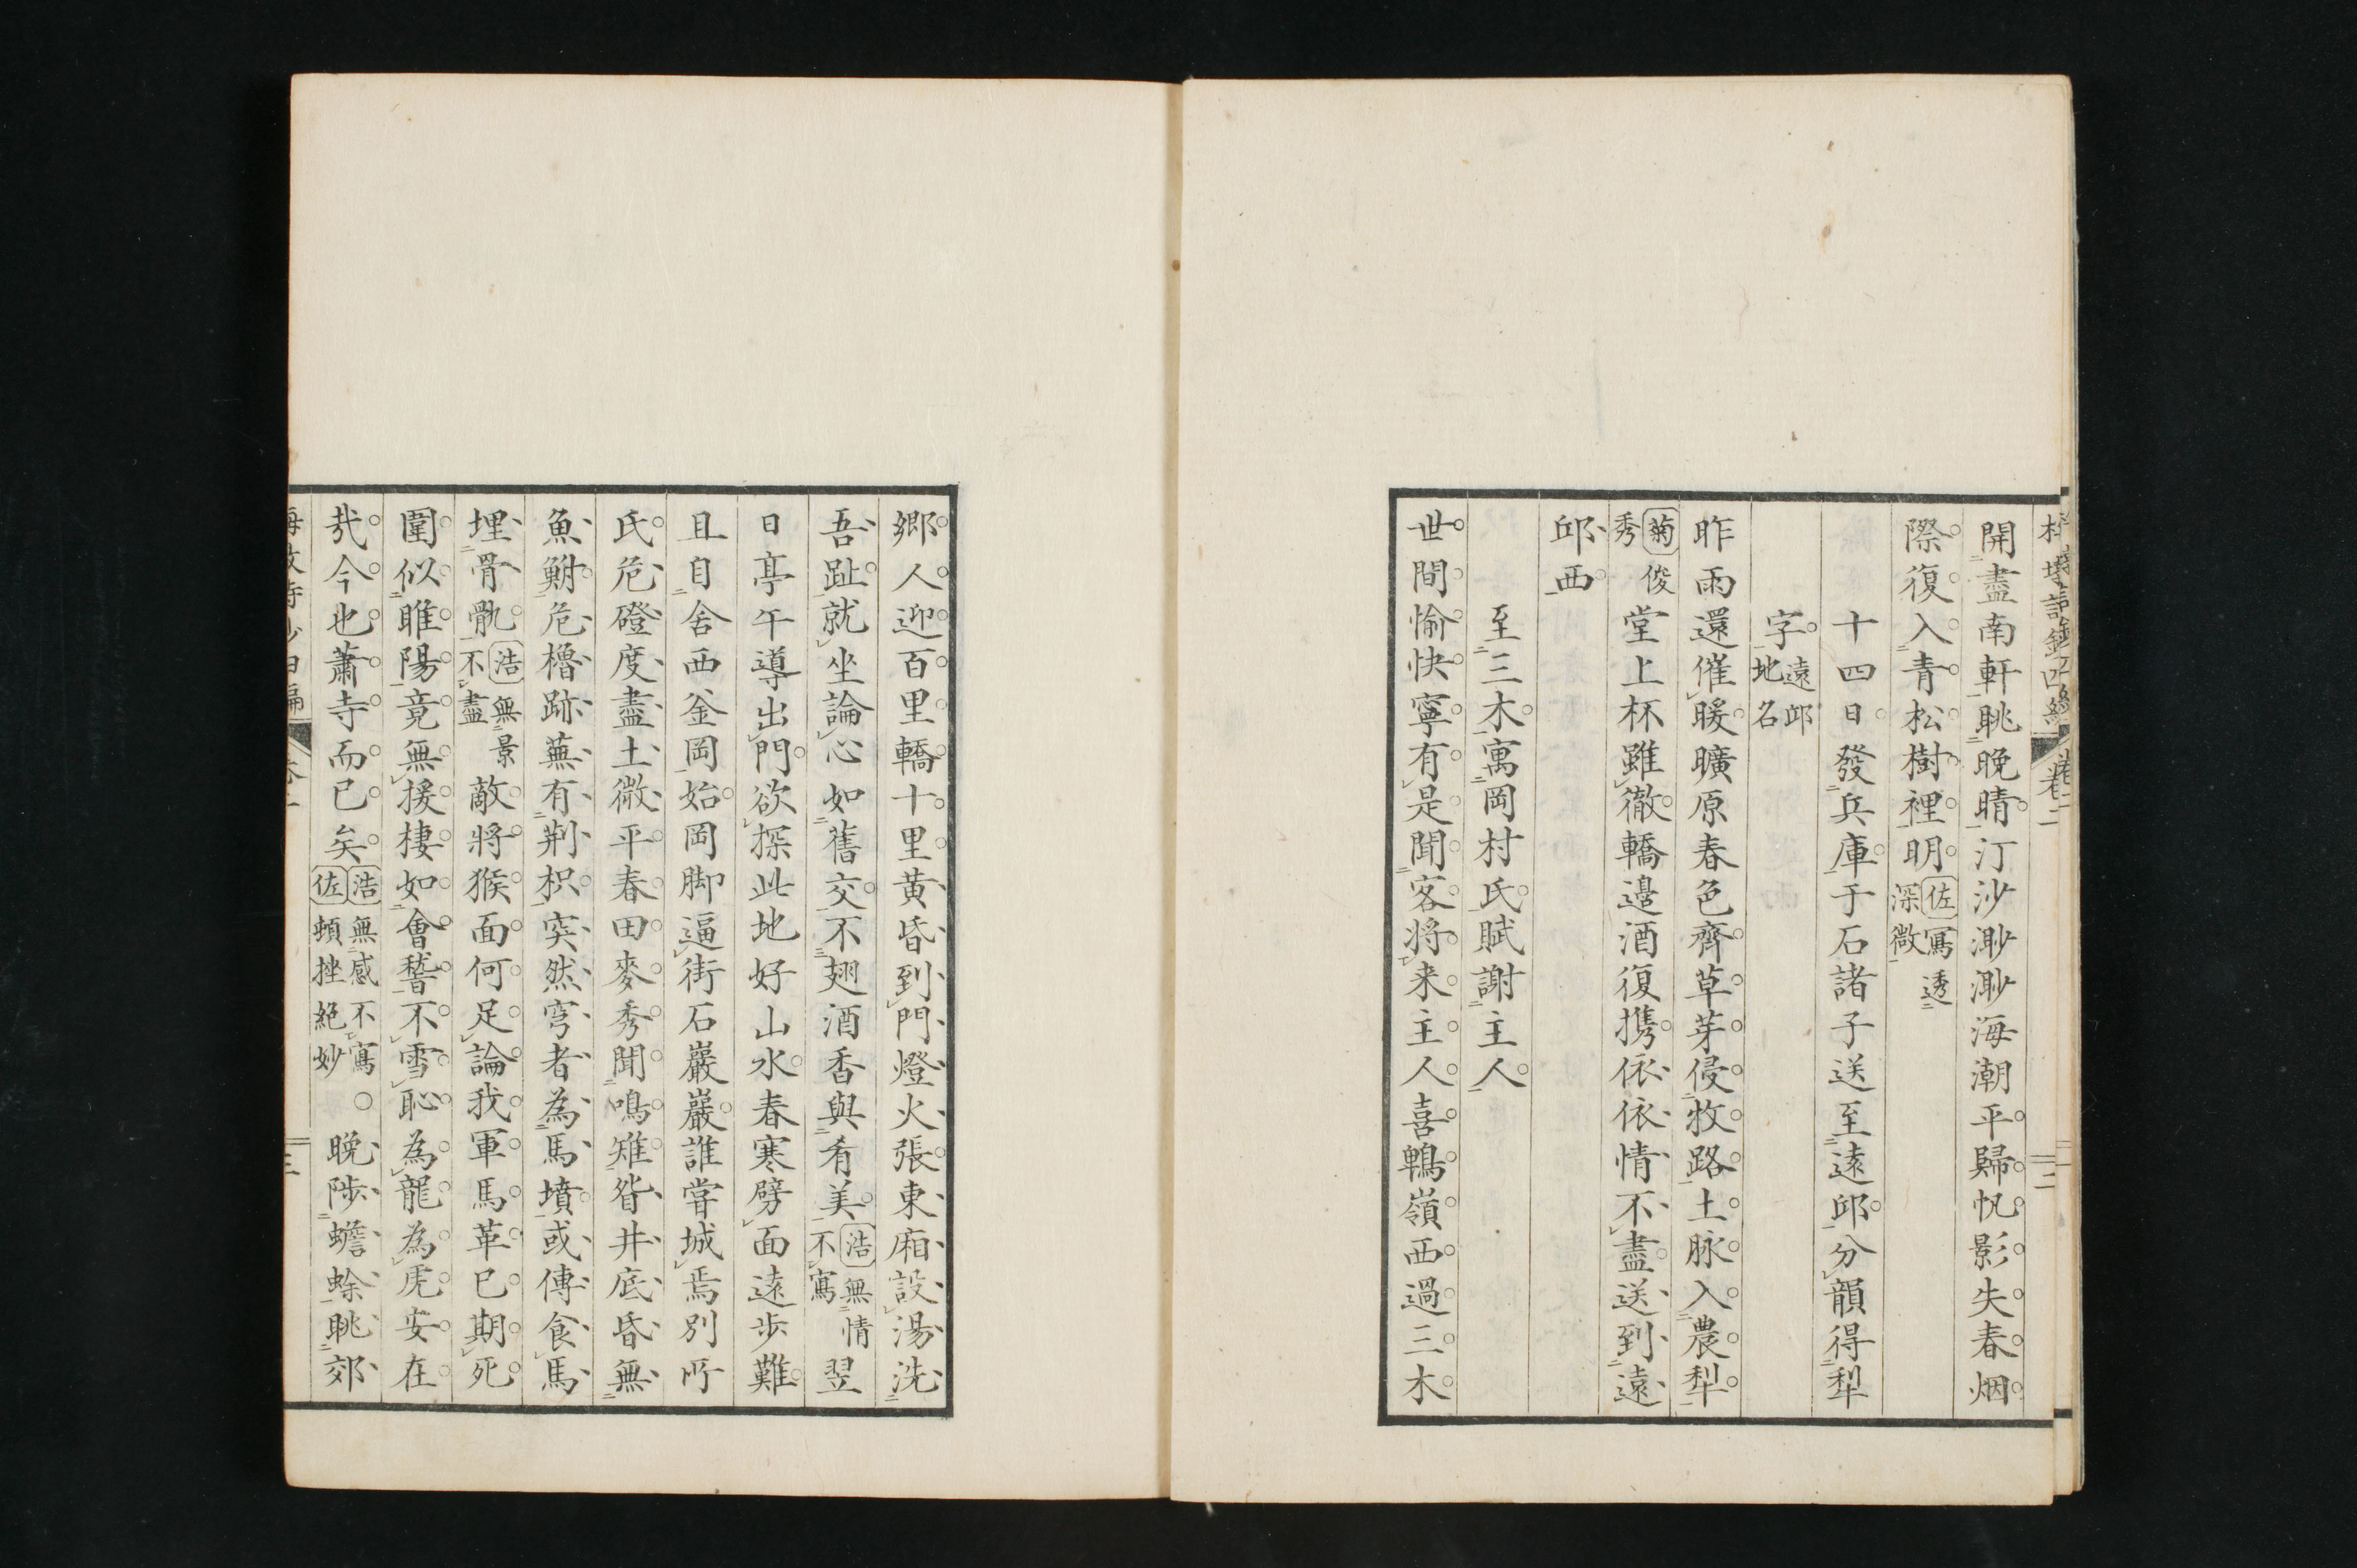 開盡南軒眺晚晴汀沙渺渺海潮平歸帆影失春烟
際復入青松樹裡明佐寫透深微
十四日發兵庫于石諸子送至遠邱分韻得犁
字遠邱地名
昨雨還催暖曠原春色齊草芽侵牧路土脉入農犁
菊俊秀堂上杯雖徹轎邊酒復携依依情不盡送到遠
邱西
至三木寓岡村氏賦謝主人
世間愉快寧有是聞客將来主人喜鵯嶺西過三木
鄉人迎百里轎十里黄昏到門燈火張東廂設湯洗
吾趾就坐論心如舊交不翅酒香與肴美浩無情不寫翌
日亭午導出門欲探此地好山水春寒劈面遠步難
且自舍西釜岡始岡脚逼街石巖巖誰嘗城焉別所
氏危磴度盡土微平春田麥秀聞鳴雉眢井底昏無
魚鮒危櫓跡蕪有荆枳突然穹者為馬墳或傳食馬
埋骨骫浩無景不盡敵將猴面何足論我軍馬革已期死
圍似睢陽竟無援棲如會稽不雪恥為龍為虎安在
哉今也蕭寺而已矣浩無感不寫佐頓挫絕妙○晚陟蟾蜍眺郊